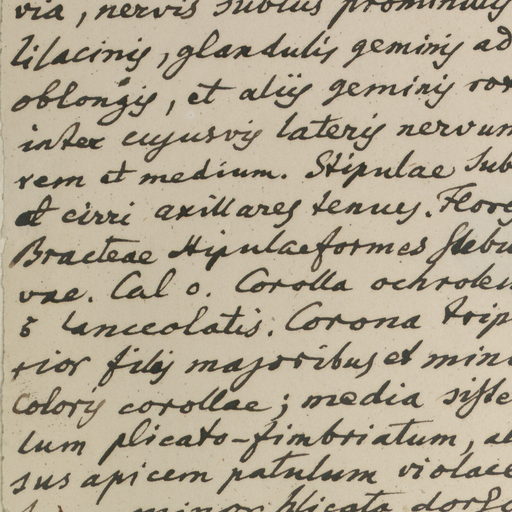 via, nervis subtus prominulis
lilacinis, glandulis geminis ad
oblongis, et aliis geminis
inter cujusvis lateris nervum
rem et medium. Stipulae sub
et cirri axillares tenues. Flores
Bracteae stipulaeformes
vae. Cal 0. Corolla ochroleu
5 lanceolatis. Corona trip
rior filis majoribus et mino
coloris corollae; media
lum plicato-fimbriatum, a
sus apicem patulum violace
minor plicata dorso